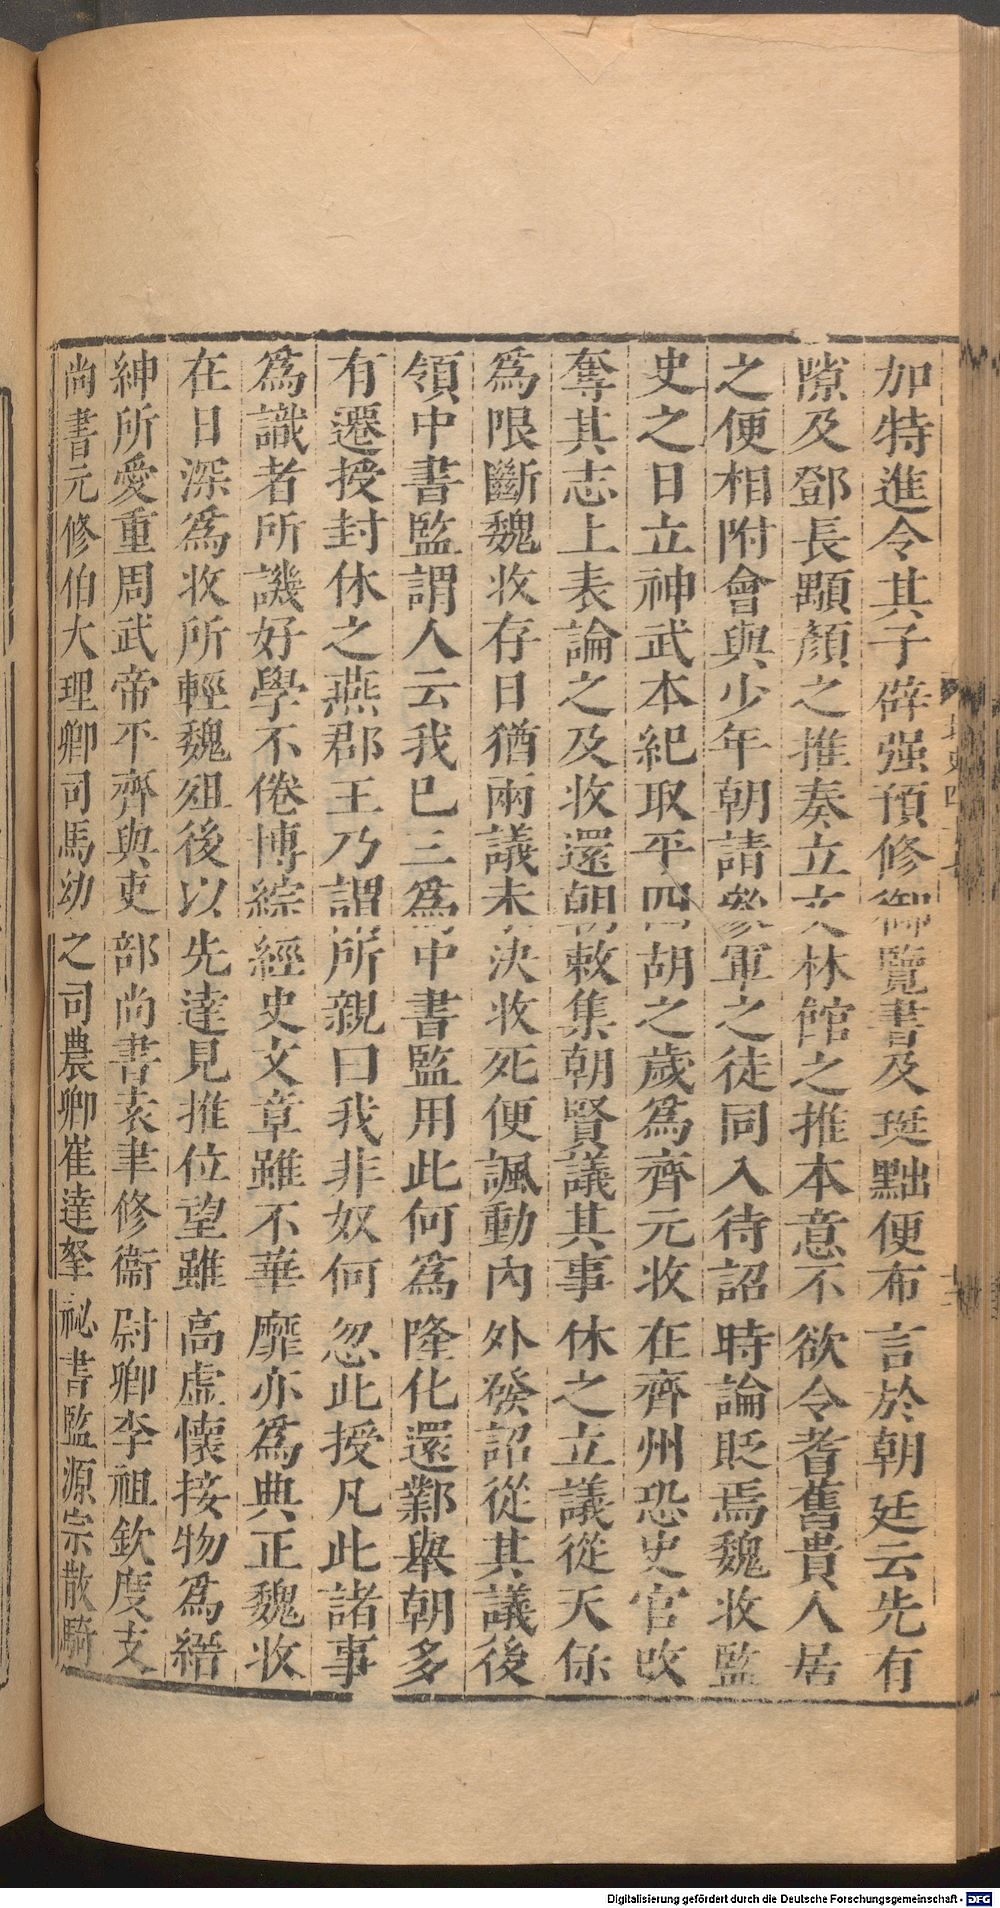 加特進令其子辟强預修御覽書及珽黜便布言於朝廷云先有
隙及鄧長顒顏之推奏立文林館之推本意不欲令耆舊貴人居
之便相附會與少年朝請參軍之徒同入待詔時論貶焉魏收監
史之日立神武本紀取平四胡之歲爲齊元收在齊州恐史官改
奪其志上表論之及收還朝敕集朝賢議其事休之立議從天保
爲限斷魏收存日猶兩議未決收死便諷動內外發詔從其議後
領中書監謂人云我已三爲中書監用此何爲隆化還鄴舉朝多
有遷授封休之燕郡王乃謂所親曰我非奴何忽此授凡此諸事
爲識者所譏好學不倦博綜經史文章雖不華靡亦爲典正魏收
在日深爲收所輕魏殂後以先達見推位望雖高虛懷接物爲縉
紳所愛重周武帝平齊與吏部尚書袁聿修衞尉卿李祖欽度支
尚書元修伯大理卿司馬幼之司農卿崔達拏祕書監源宗散騎
Digitalisierung gefördert durch die Deutsche Forschungsgemeinschaft - DFG